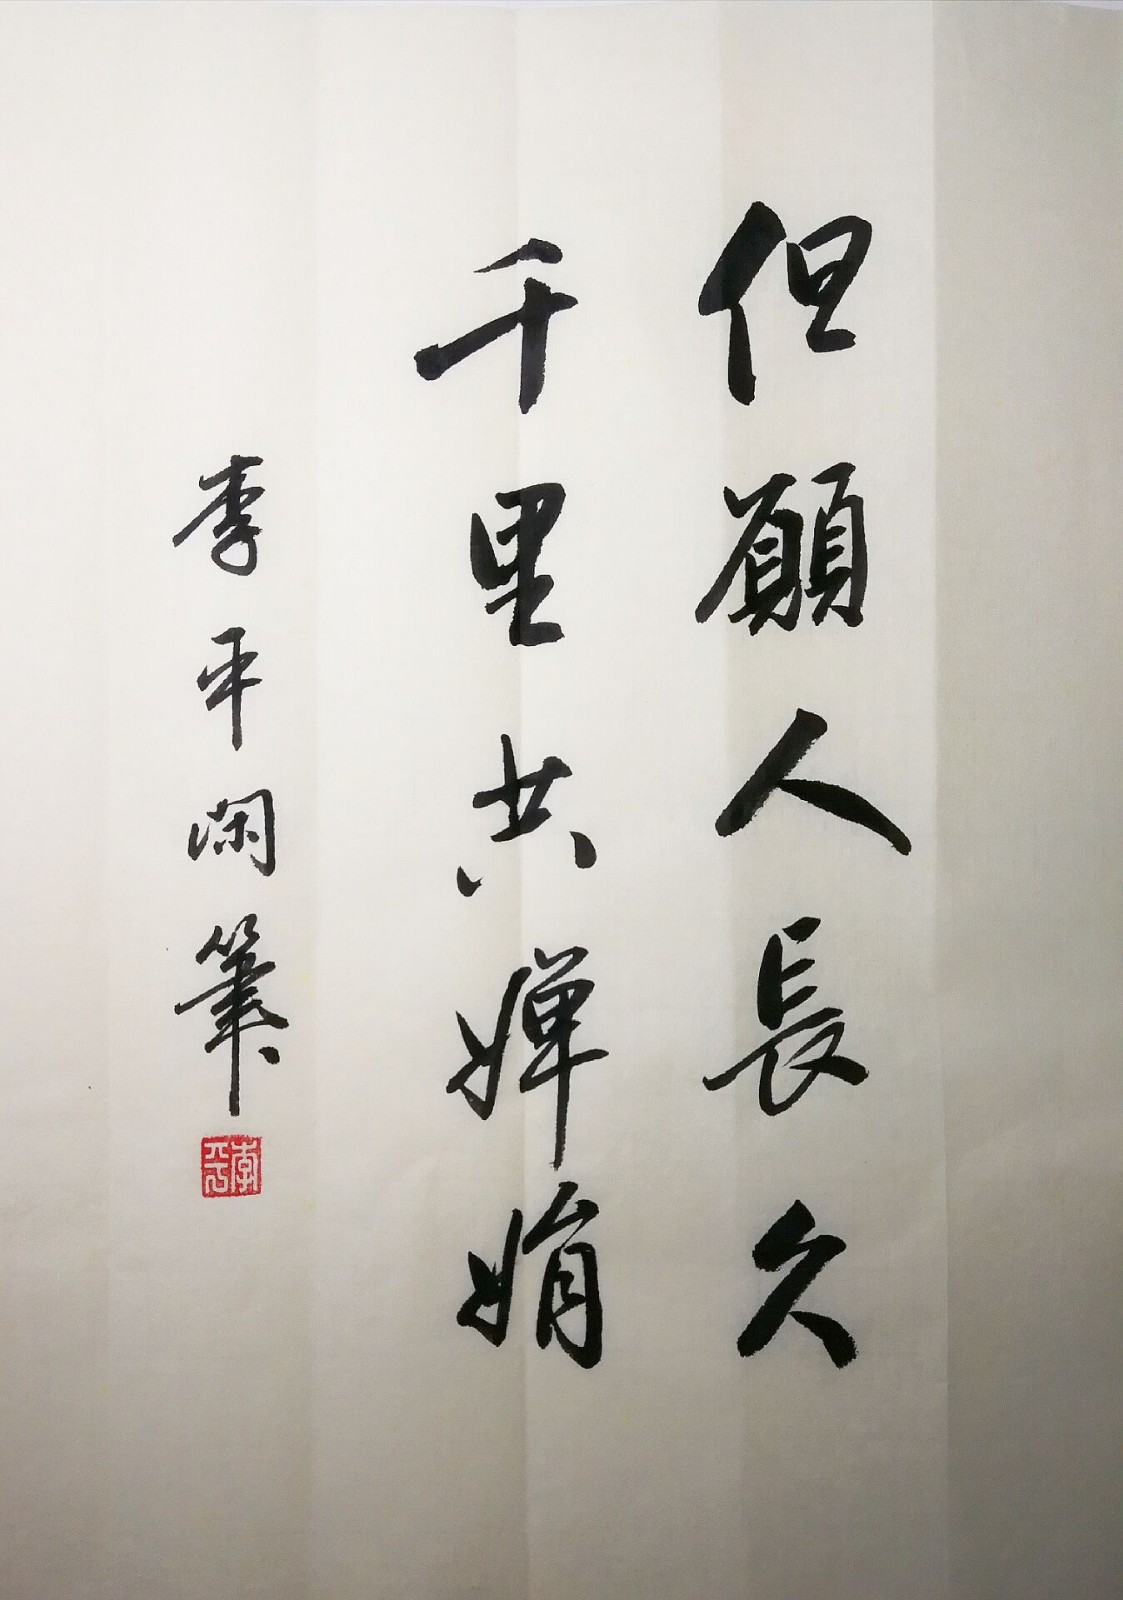 但願人長久
千里共嬋娟
李平閑筆
李平